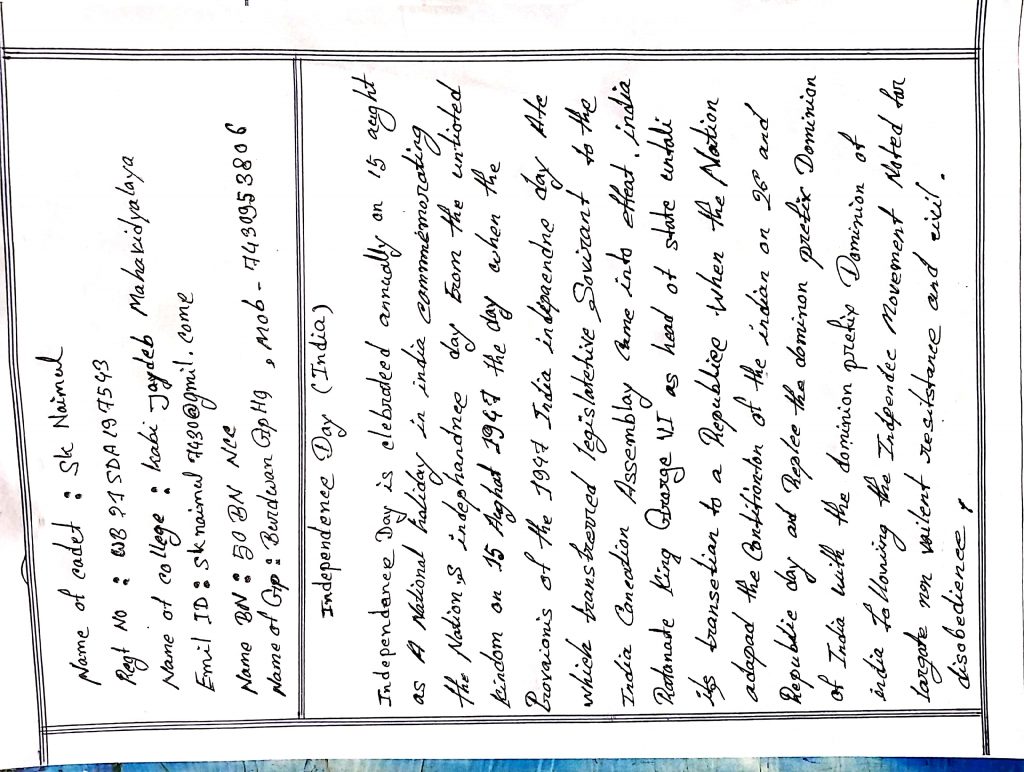 Name of cadet : Sk Naimul
Regt No : WB21SDA197543
Name of college : kabi Jaydeb Mahavidyalaya
Emil ID : sknaimul7430@gmil.come
Name BN : 50 BN NCC
Name of Gp : Burdwan GpHq , Mob - 7430953806
Independence Day (India)
Independence Day is clebrdeed annually on 15 aught
as A National holiday in india commmemorating
the Nation,s indephandnee day from the untioted
kindom on 15 Aughat 1947 the day when the
Provaionis of the 1947 India indepaendne day Ate
which transferred legislatehive Sovirant to the
India Conceation Assemblay Came into effeat. india
Ratanate king George VI as head of state untali
its transetian to a Republice When the Nation
adapad the Contitionton of the indian on 26 and
Republic day ad Replee the dominon prefix Dominion
of India with the dominion prefix Dominion of
india following the Indpendec Movement Noted for
largate non vailent resitstance and civil.
disobedience.